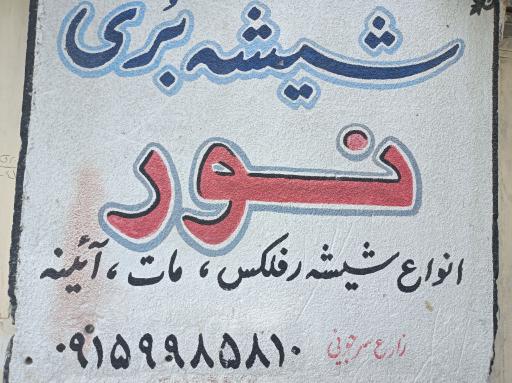 شیشه بُری
نور
انواع شیشه رفلکس، مات، آئینه
۰۹۱۵۹۹۸۵۸۱۰
زارع